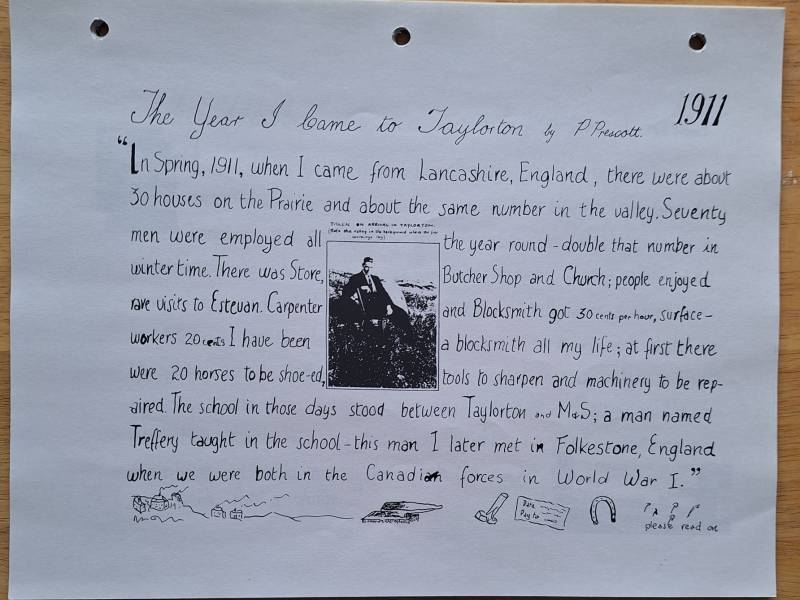 The Year I Came to Taylorton by P Prescott.
1911
“In Spring, 1911, when I came from Lancashire, England, there were about
30 houses on the Prairie and about the same number in the valley. Seventy
men were employed all the year round - double that number in
winter time. There was Store, Butcher Shop and Church; people enjoyed
rare visits to Estevan. Carpenter and Blocksmith got 30 cents per hour, surface-
workers 20 cents I have been a blocksmith all my life; at first there
were 20 horses to be shoe-ed, tools to sharpen and machinery to be rep-
aired. The school in those days stood between Taylorton and M&S; a man named
Treffery taught in the school - this man I later met in Folkestone, England
when we were both in the Canadian forces in World War I.”
ON ARRIVAL IN TAYLORTON.
Date
Pay to
please read on